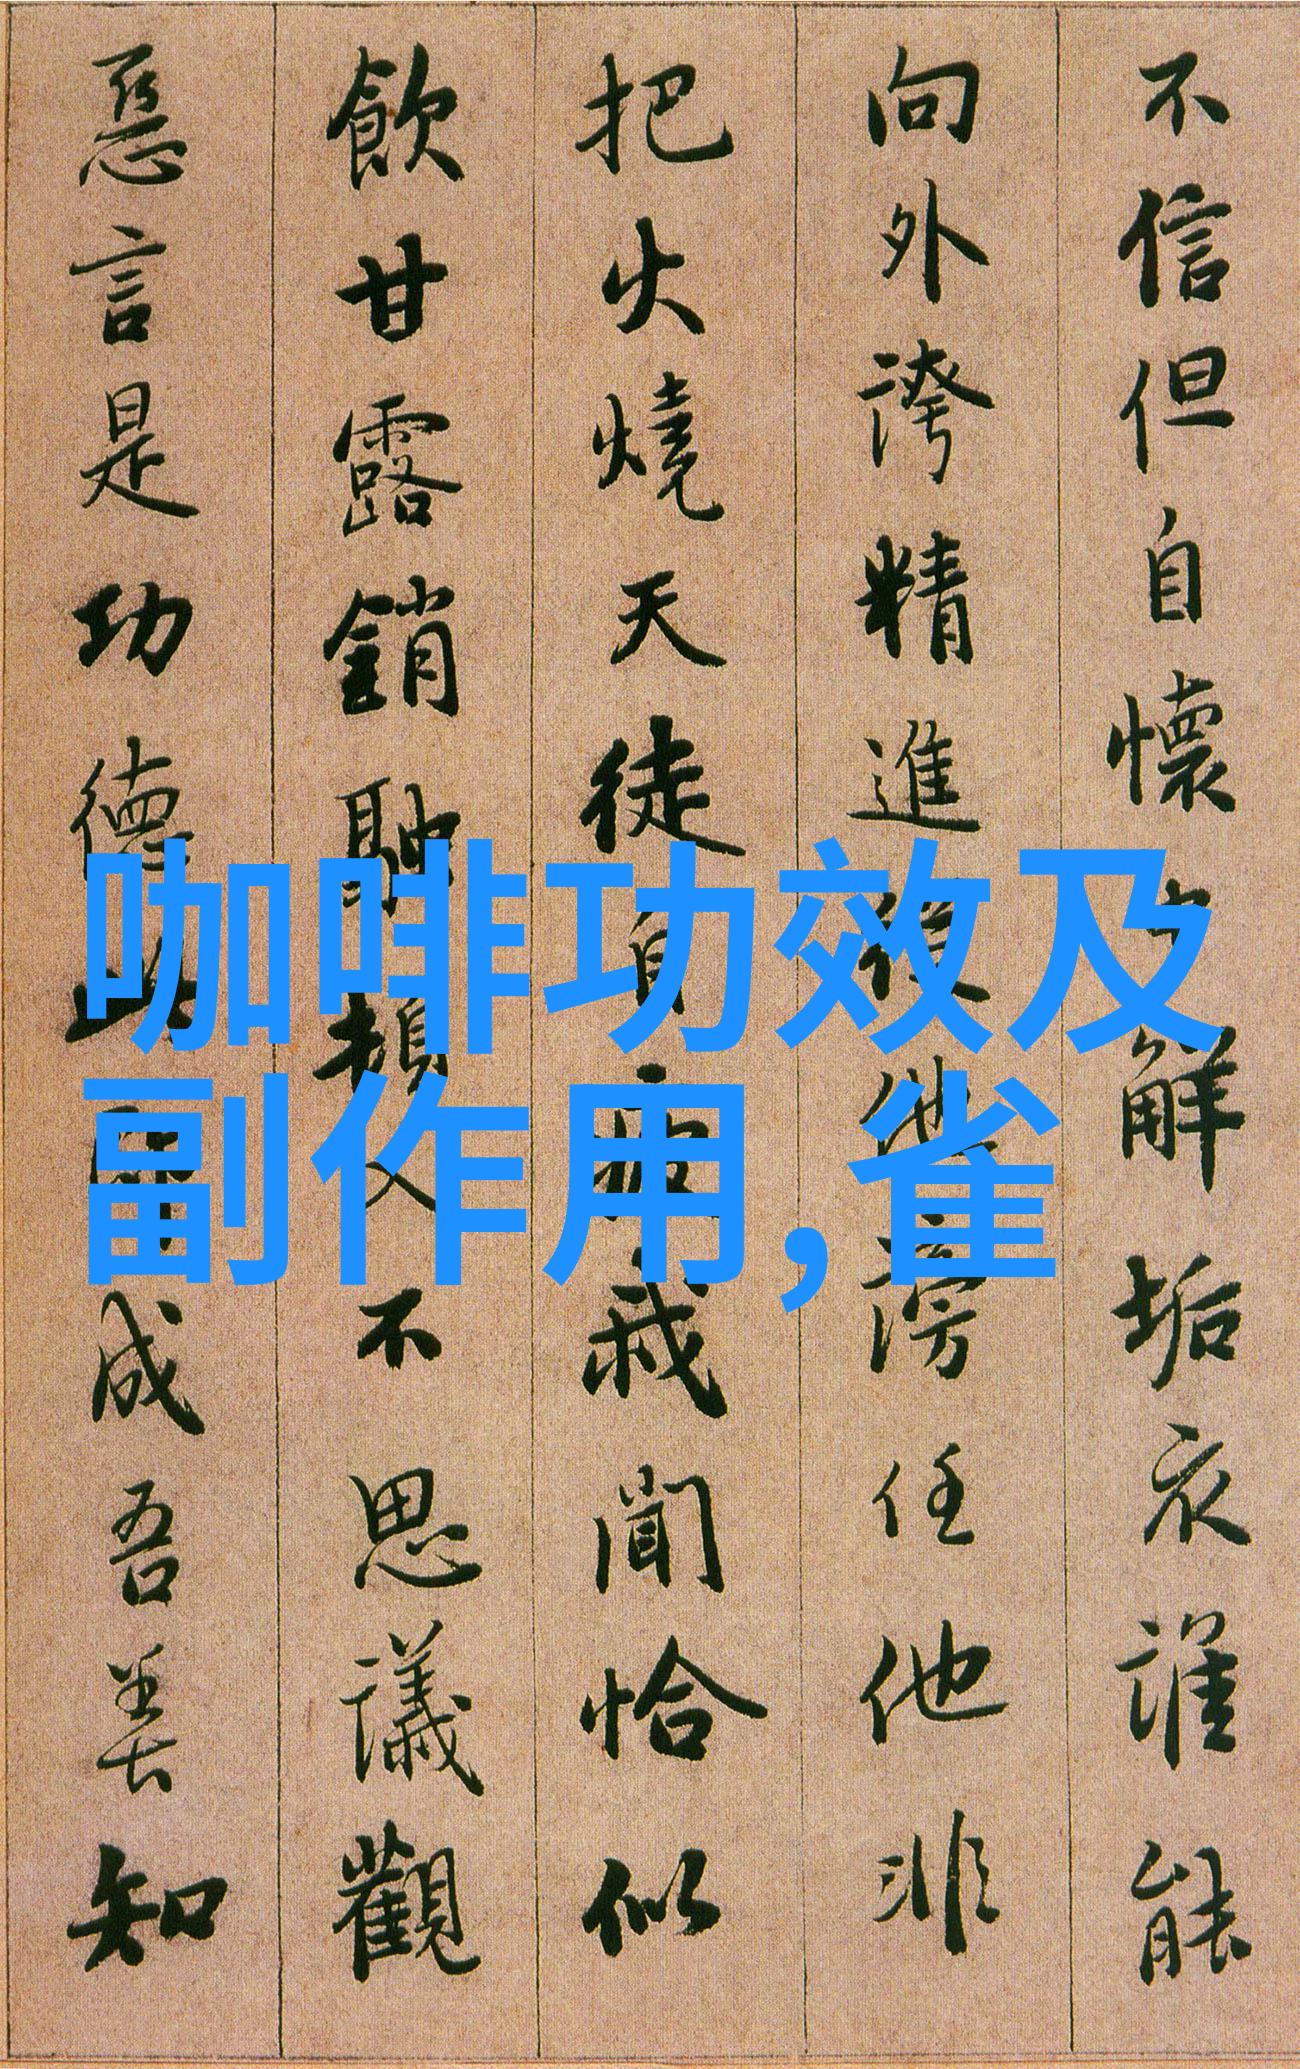 不信但自懷中解垢衣誰能
向外誇精進從他謗任他非
把火燒天徒自疲我聞恰似
飲甘露銷融頓入不思議觀
惡言是功德此即成吾善知
咖啡功效及
副作用,雀